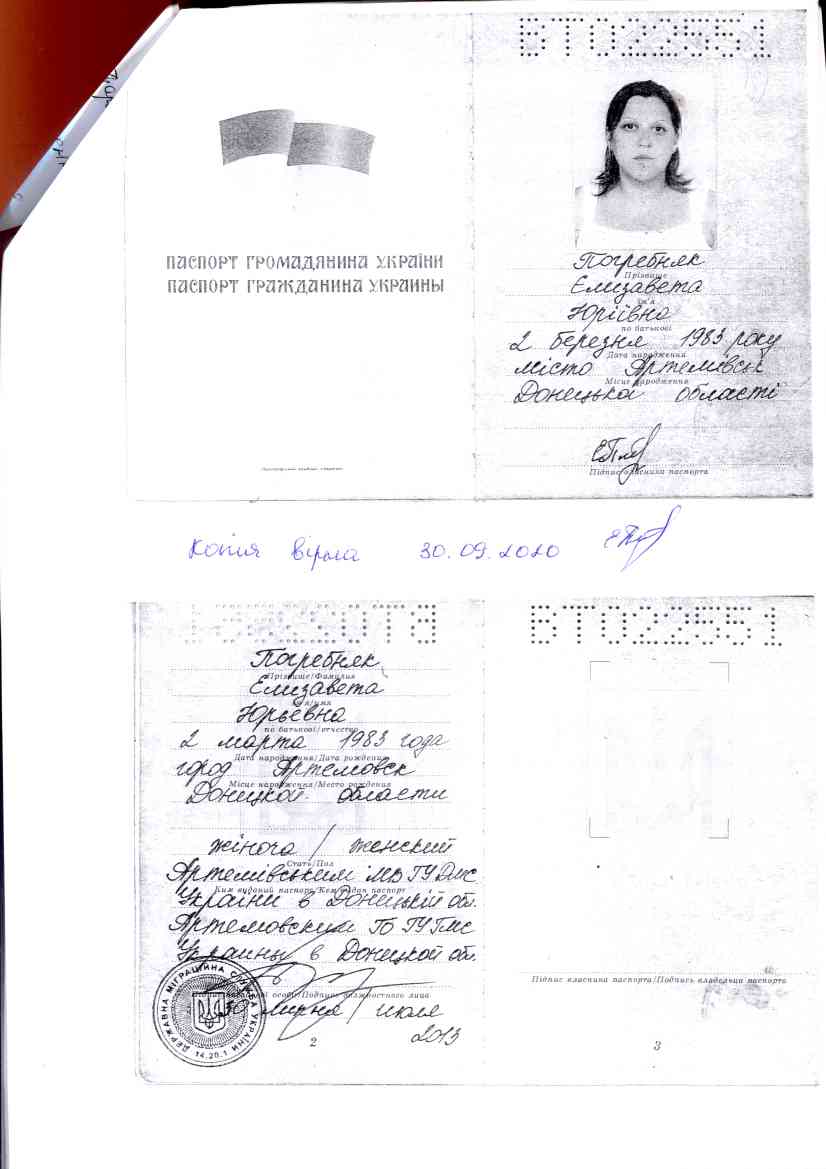 ВТ022551
ПАСПОРТ ГРОМАДЯНИНА УКРАЇНИ
ПАСПОРТ ГРАЖДАНИНА УКРАИНЫ
Погребняк
Прізвище
Єлизавета
Ім'я
Юріївна
по батькові
2 березня 1983 року
Дата народження
місто Артемівськ
Місце народження
Донецької області
Підпис власника паспорта
Копія вірна 30.09.2020
ВТ022551
Погребняк
Прізвище/Фамилия
Елизавета
Ім'я/имя
Юрьевна
по батькові/отчество
2 марта 1983 года
Дата народження/Дата рождения
город Артемовск
Місце народження/Место рождения
Донецкой области
жіноча / женский
Стать/Пол
Артемівським МВ ГУДМС
Ким виданий паспорт/Кем выдан паспорт
України в Донецькій обл.
Артемовским ГО ГУГМС
Украины в Донецкой обл.
ДЕРЖАВНА МІГРАЦІЙНА СЛУЖБА УКРАЇНИ
14.20.1
особи/Подпись должностного лица
30 липня / июля
2013
2
Підпис власника паспорта/Подпись владельца паспорта
3